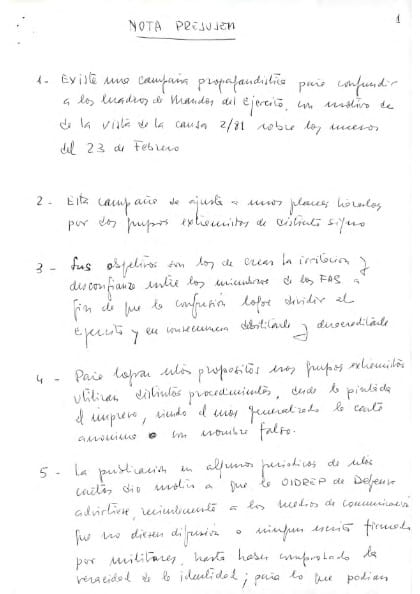 1
NOTA PREJUJEM
1 - Existe una campaña propagandística para confundir
a los Cuadros de Mandos del Ejército, con motivo de
de la vista de la causa 2/81 sobre los sucesos
del 23 de Febrero
2 - Esta campaña se ajusta a unos planes
por dos grupos extremistas de distinto signo
3 - Sus objetivos son los de crear la irritación y
desconfianza entre los miembros de las FAS a
fin de que la confusión logre dividir al
Ejército y en consecuencia debilitarle y desacreditarle
4 - Para lograr estos propósitos esos grupos extremistas
utilizan distintos procedimientos, desde la pintada
al impreso, siendo el mas generalizado la carta
anónima o con nombre falso.
5 - La publicación en algunos periódicos de estas
cartas dio motivo a que la OIDREP de Defensa
advirtiese, recientemente a los medios de comunicación
que no diesen difusión a ningun escrito firmado
por militares, hasta haber comprobado la
veracidad de la identidad; para lo que podian